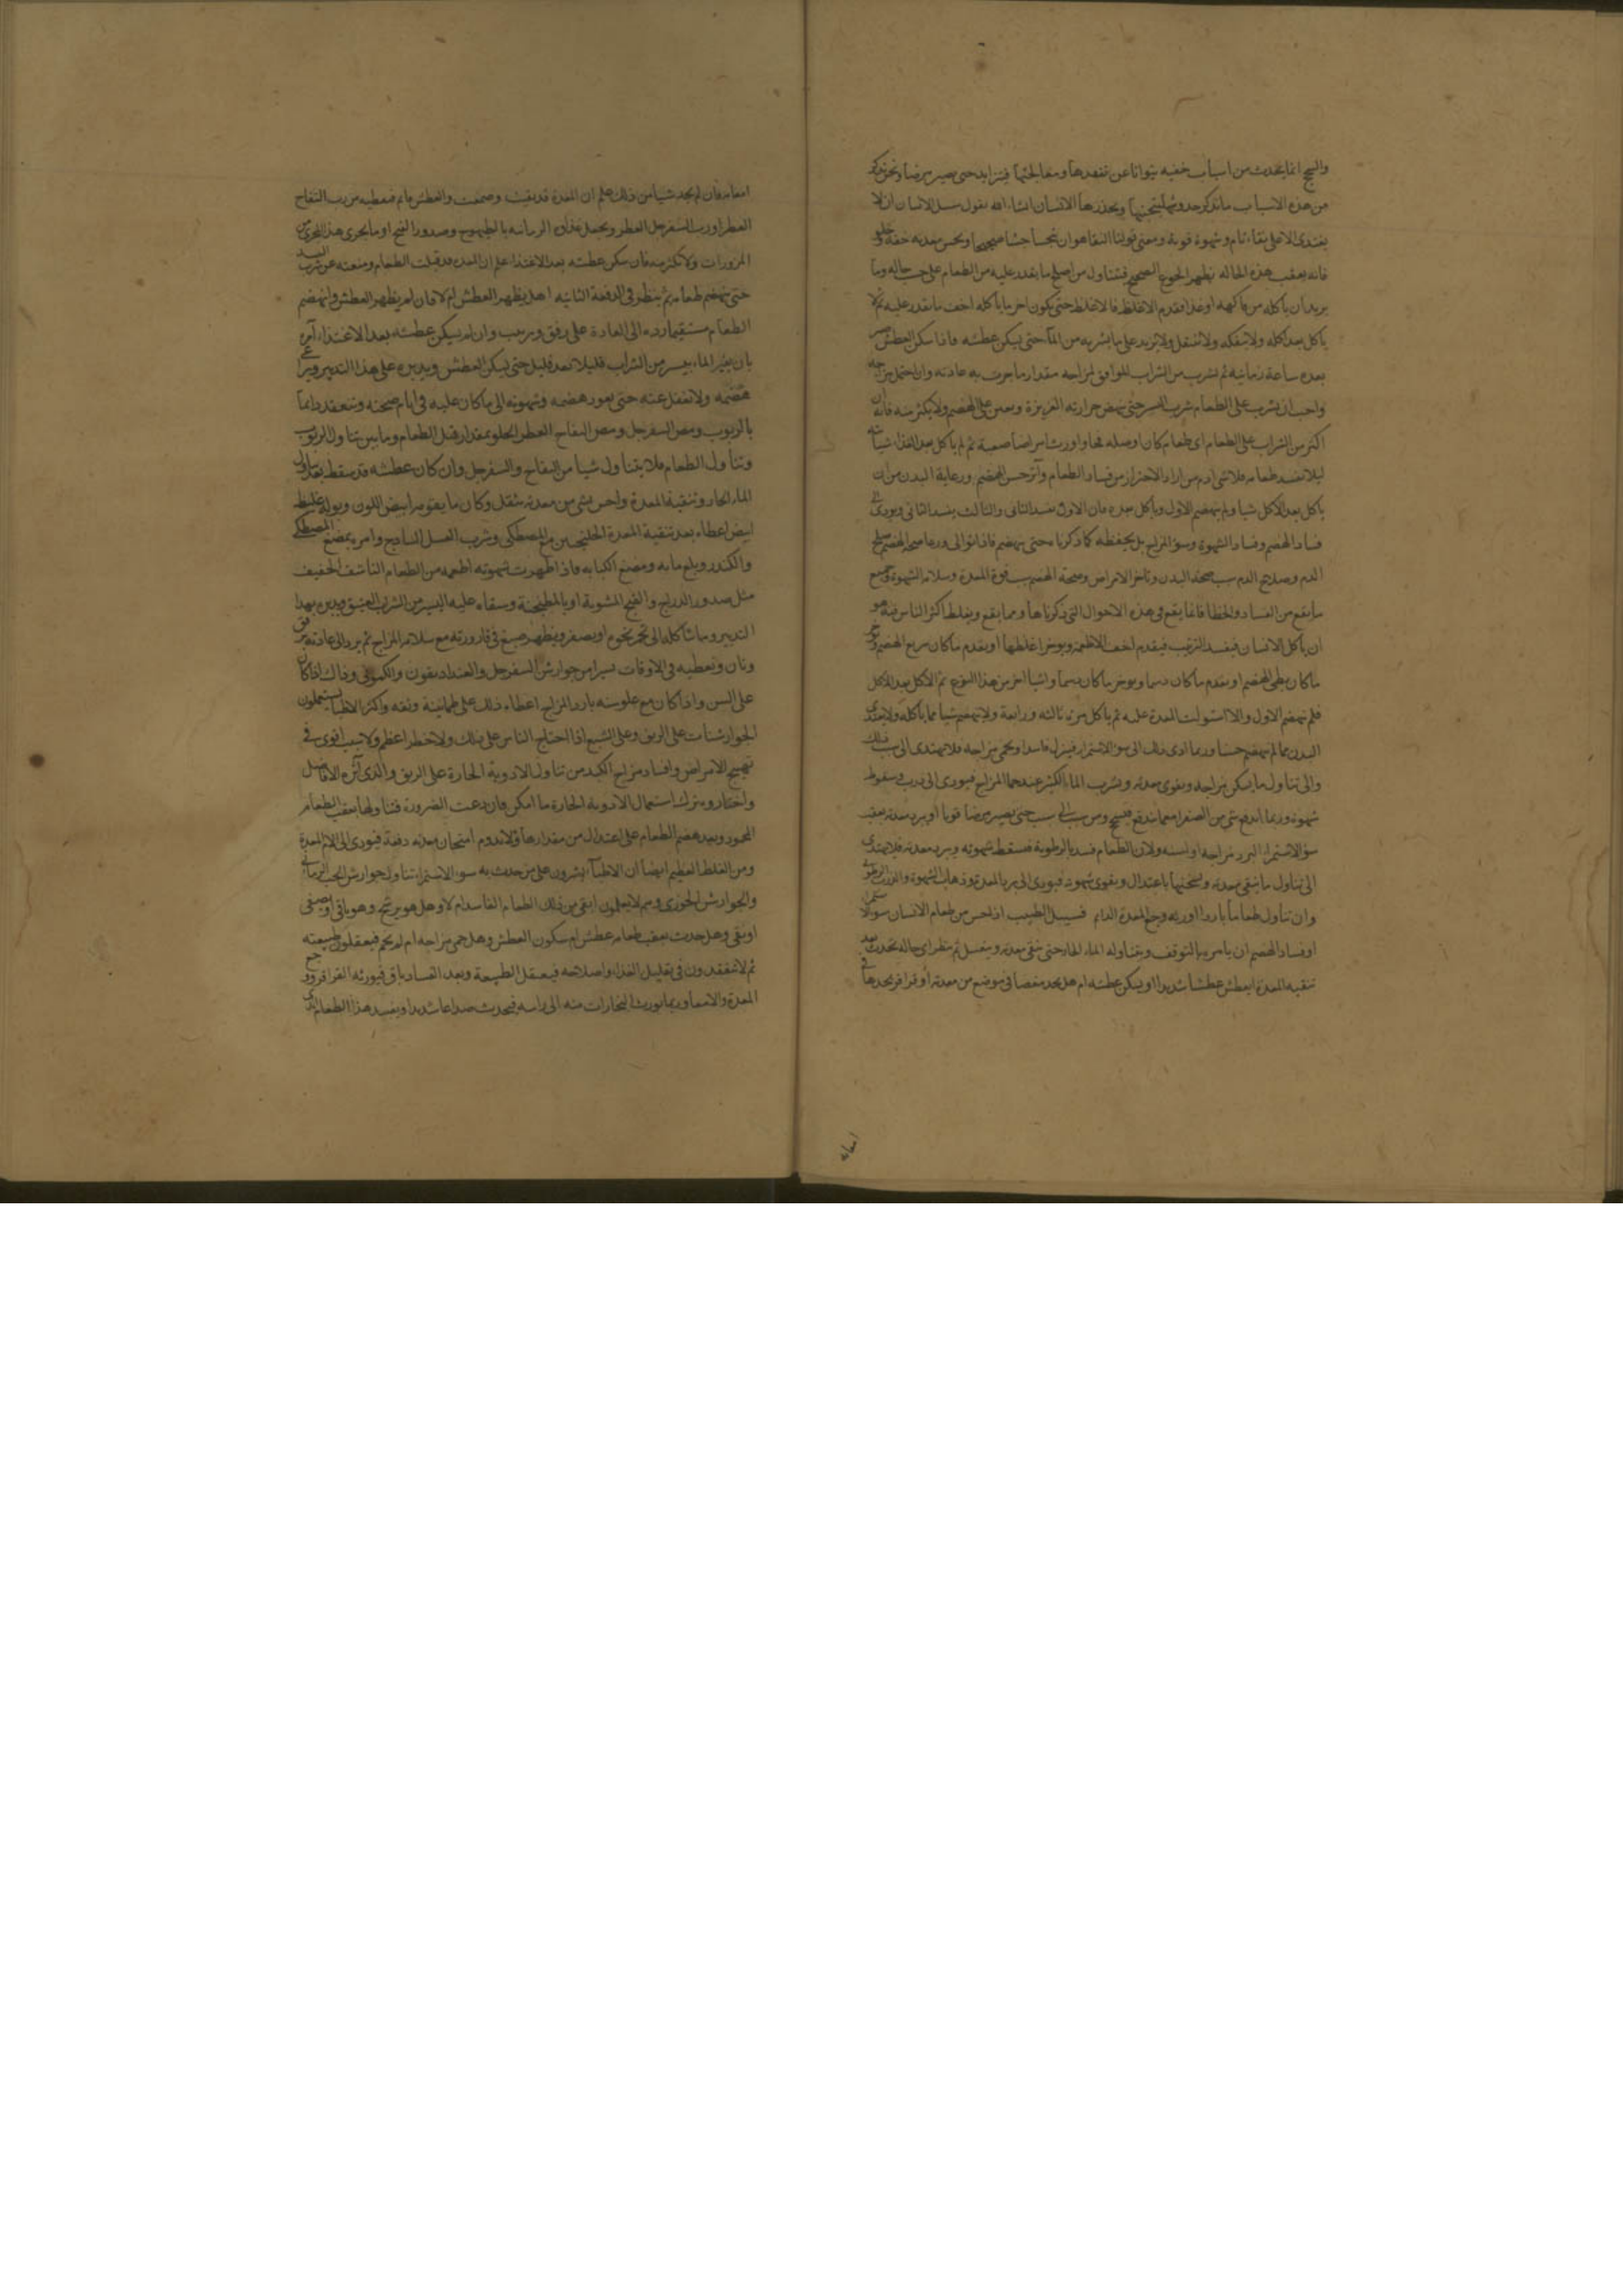 والسحج انما يحدث من اسباب خفيه يتوانا عن تفقدها ومعالجتها فيتزايد حتى يصير مرضا ونحن نذكر
من هذه الاسباب ما نذكر حدوثها ليتجنبها ويحذرها الانسان انشاء الله نقول سبيل الانسان ان لا
يغتدى الا على نقاء تام وشهوة قوية ومعنى قولنا النقا هو ان يتجسا جشا صحيحا ويحس معدته خفة وخلو
فانه يعقب هذه الحاله يظهر الجوع الصحيح فيتناول من اصلح ما يقدر عليه من الطعام على حسب حاله وما
يريد ان ياكله من فاكهه او غذا فقدم الاغلظ فالاغلظ حتى يكون اخر ما ياكله اخف ما يقدر عليه ثم لا
ياكل بعد اكله ولا يتفكه ولا يتنقل ولا يزيد على ما يشربه من الماء حتى يسكن عطشه فاذا سكن العطش
بعده ساعة زمانيه ثم يشرب من الشراب الموافق لمزاجه مقدار ما جرت به عادته وان احتمل مزاجه
واحب ان يشرب على الطعام شرب اليسير حتى ينهض حرارته الغريزة ويعين على الهضم ولا يكثر منه فانه ان
اكثر من الشراب على الطعام اى طعام كان اورث امراضا صعبة ثم لم ياكل بعد الغذا شيا
ليلا يفسد طعامه فلا شى ادم من اراد الاحتراز من فساد الطعام وآثر حسن الهضم ورعاية البدن من ان
ياكل بعد الاكل شيا ولم ينهضم الاول وياكل بعده فان الاول يفسد الثانى والثالث يفسد الثانى ويودى الى
فساد الهضم وفساد الشهوة وسوء المزاج بل يحفظه كما ذكرنا حتى ينهضم فاذا توالى ورعا صحه الهضم صلح
الدم وصلاح الدم سبب صحة البدن وتاخر الامراض وصحة الهضم سبب قوة المعدة وسلامة الشهوة وجميع
ما يقع من الفساد والخطا فانما يقع فى هذه الاحوال التى ذكرناها ومما يقع ويغلط اكثر الناس فيه هو
ان ياكل الانسان فيفسد الترتيب فيقدم اخف الاطعمة ويوخر اغلظها او يقدم ما كان سريع الهضم ويوخر
ما كان بطى الهضم او يقدم ما كان دسما ويوخر ما كان دسما واشيا اخر من هذا النوع ثم الاكل بعد الاكل
فلم ينهضم الاول والا استولت المعدة عليه ثم ياكل مرة ثالثه ورابعة ولا ينهضم شيا مما ياكله ولا يغتدى
البدن مما لم ينهضم حسنا وربما ادى ذلك الى سوء الاستمرا فينزل فاسدا ويحمى مزاجه فلا يهتدى الى سبب ذلك
والى تناول ما يسكن مزاجه ويقوى معدته ويشرب الماء الكثير عند حما المزاج فيودى الى ذرب وسقوط
شهوته وربما اندفع شى من الصفرا معما يندفع فيسحج ومن سبب الى سبب حتى يصير مرضا قويا او يبرد معدته بعقب
سوء الاستمرا البرد مزاجه او لسنه ولان الطعام فسد بالرطوبة فيسقط شهوته ويبرد معدته فلا يهتدى
الى تناول ما ينقى معدته ويسخنها باعتدال ويقوى شهوته فيودى الى برد المعدة وذهاب الشهوة
وان تناول طعاما باردا اورثه وجع المعدة الدايم فسبيل الطبيب اذا احس من طعام الانسان سوء الاستمرا
او فساد الهضم ان يامره بالتوقف ويتناوله الماء الحار حتى ينقى معدته ويغسل ثم ينظر اى حاله يحدث بعد
تنقيه المعدة ايعطش عطشا شديدا او يسكن عطشه ام هل يجد مغصا فى موضع من معدته او قراقر يجدها فى
امعائه
امعائه فان لم يجد شيا من ذلك علم ان المعدة قد نقيت وضعفت والعطش دايم فيعطيه من رب التفاح
العطر او رب السفرجل العطر ويجعل غذاه الرمانيه بالطيهوج وصدور القبج او ما يجرى هذا المجرى من
المزورات ولا يكثر منه فان سكن عطشه بعد الاغتذا علم ان المعده قد قبلت الطعام ومنعته عن شرب النبيذ
حتى ينهضم طعامه ثم ينظر فى الدفعة الثانيه اهل يظهر العطش ام لا فان لم يظهر العطش وانهضم
الطعام مستقيما رده الى العادة على رفق وترتيب وان لم يسكن عطشه بعد الاغتذاء آمره
بان يغير الماء بيسير من الشراب قليلا بعد قليل حتى يسكن العطش ويدبره على هذا التدبير ويراعى
هضمه ولا تغفل عنه حتى يعود هضمه وشهوته الى ما كان عليه فى ايام صحته وتتعقده دايما
بالربوب ومص السفرجل ومص التفاح العطر الحلو بمقدار قبل الطعام وما بين تناول الربوب
وتناول الطعام فلا يتناول شيا من التفاح والسفرجل وان كان عطشه قد سقط بعد تناول
الماء الحار وتنقية المعدة واحس بشى من معدته بثقل وكان ما يقومه ابيض اللون وبوله غليظ
ابيض اعطاه بعد تنقية المعدة الجلنجبين مع المصطكى وشرب العسل الساذج وامره بمضغ المصطكى
والكندر وبلع مايه ومضغ الكبابه فاذا ظهرت شهوته اطعمه من الطعام الناشف الخفيف
مثل صدور الدراج والقبج المشوية او بالمطبخنة وسقاه عليه اليسير من الشراب العتيق ويدبره بهذا
التدبير وما شاكله الى ثم يخوم او يصفر ويظهر صبغ فى قارورته مع سلامة المزاج ثم يرد الى عادته برفق
وتان وتعطيه فى الاوقات يسيرا من جوارش السفرجل والعنداديقون والكمونى وذاك اذا كان
على السن واذا كان مع علو سنه بارد المزاج اعطاه ذلك على طمانينة وثقه واكثر الاطبا يستعملون
الجوارشنات على الريق وعلى الشبع اذا احتاج الناس على ذلك ولا خطر اعظم ولا سبب اقوى فى
تهييج الامراض وافساد مزاج الكبد من تناول الادوية الحارة على الريق والذى آثره الافاضل
واختاروه ترك استعمال الادوية الحارة ما امكن فان دعت الضرورة فتناولها بعقب الطعام
المحمود وبعد هضم الطعام على اعتدال من مقدارها ولا تدوم امتحان معدته دفعة فيودى الى الام المعدة
ومن الغلط العظيم ايضا ان الاطباء يشيرون على من حدث به سوء الاستمرا تناول جوارش الحب الرمانى
والجوارش الخوزى وهم لا يعلمون ابقى من ذلك الطعام الفاسد ام لا وهل هو يرشح وهو باقى او يصفى
او نقى وهل حدث بعقب طعامه عطش ام سكون العطش وهل حمى مزاجه ام لم يحم فيعقلون طبيعته
ثم لا يتفقدون فى تقليل الغذا واصلاحه فيعقل الطبيعة وبعد الفساد باقى فيورثه القراقر ووجع
المعدة والامعا وربما يورث البخارات منه الى راسه فيحدث صداعا شديدا ويفسد هذا الطعام الذى